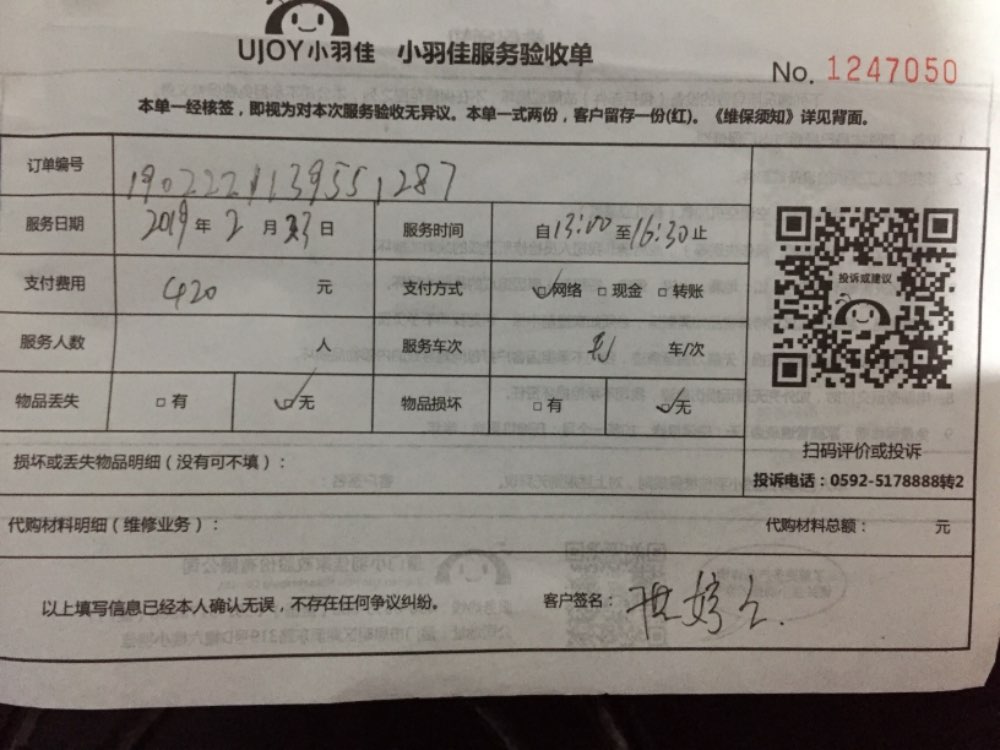 UJOY小羽佳 小羽佳服务验收单
No. 1247050
本单一经核签，即视为对本次服务验收无异议。本单一式两份，客户留存一份(红)。《维保须知》详见背面。
订单编号 1902221139551287
服务日期 2019年2月23日 服务时间 自13:00至16:30止
支付费用 420 元 支付方式 ☑网络 □现金 □转账
服务人数 人 服务车次 车/次
物品丢失 □有 ☑无 物品损坏 □有 ☑无
投诉或建议
扫码评价或投诉
投诉电话：0592-5178888转2
损坏或丢失物品明细（没有可不填）：
代购材料明细（维修业务）： 代购材料总额： 元
以上填写信息已经本人确认无误，不存在任何争议纠纷。 客户签名：